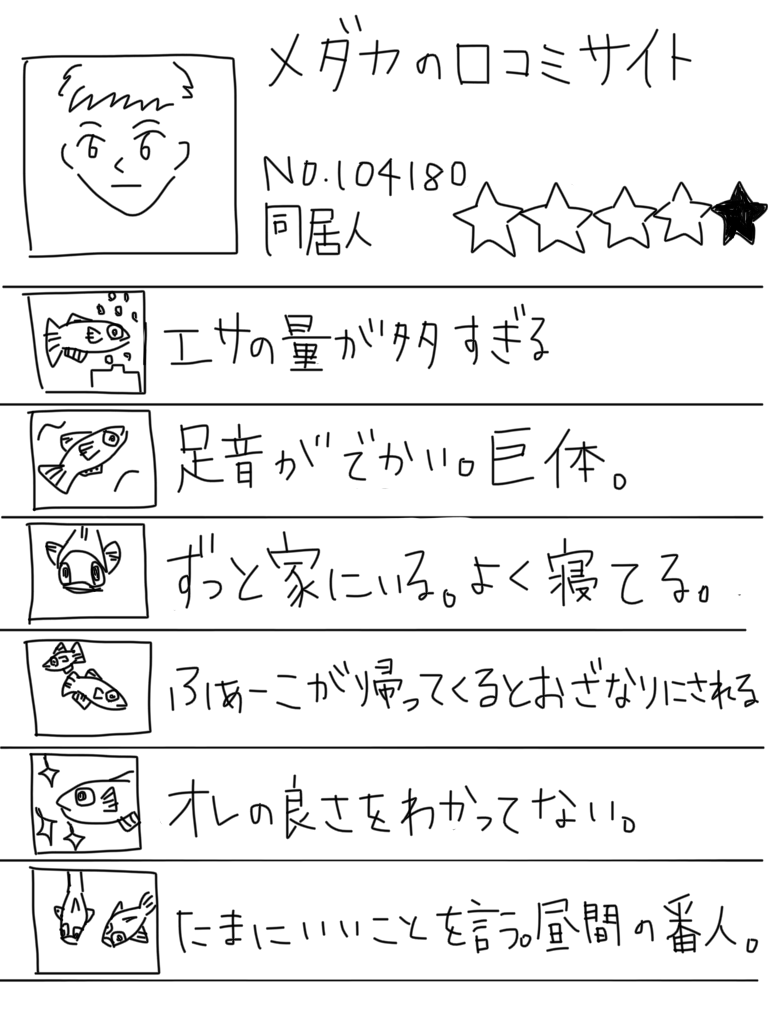 メダカの口コミサイト
NO.104180
同居人
エサの量が多すぎる
足音がでかい。巨体。
ずっと家にいる。よく寝てる。
ふぁーこが帰ってくるとおざなりにされる
オレの良さをわかってない。
たまにいいことを言う。昼間の番人。